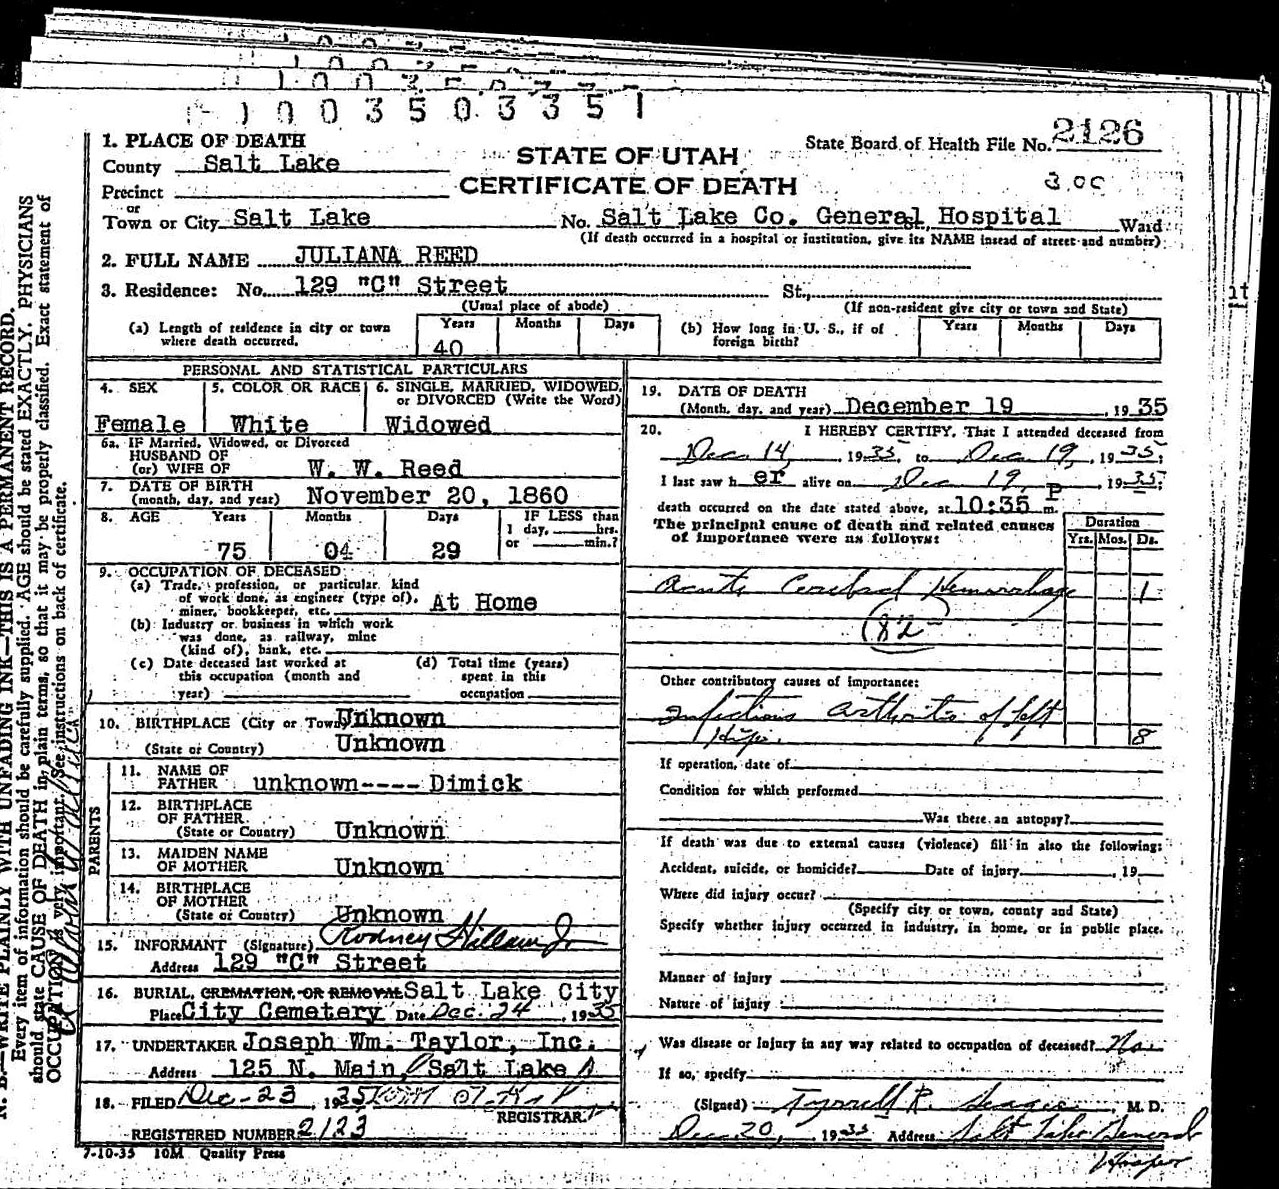 1003503351
1. PLACE OF DEATH
County Salt Lake
Precinct
or
Town or City Salt Lake No. Salt Lake Co. General Hospital Ward
(If death occurred in a hospital or institution, give its NAME instead of street and number)
STATE OF UTAH
CERTIFICATE OF DEATH
State Board of Health File No. 2126
300
2. FULL NAME JULIANA REED
3. Residence: No. 129 "C" Street St.,
(Usual place of abode) (If non-resident give city or town and State)
(a) Length of residence in city or town where death occurred. Years Months Days
40
(b) How long in U. S., if of foreign birth? Years Months Days
PERSONAL AND STATISTICAL PARTICULARS
4. SEX 5. COLOR OR RACE 6. SINGLE, MARRIED, WIDOWED, or DIVORCED (Write the Word)
Female White Widowed
6a. IF Married, Widowed, or Divorced
HUSBAND OF
(or) WIFE OF W. W. Reed
7. DATE OF BIRTH
(month, day, and year) November 20, 1860
8. AGE Years Months Days IF LESS than
1 day, hrs.
or min.?
75 04 29
9. OCCUPATION OF DECEASED
(a) Trade, profession, or particular kind
of work done, as engineer (type of),
miner, bookkeeper, etc. At Home
(b) Industry or business in which work
was done, as railway, mine
(kind of), bank, etc.
(c) Date deceased last worked at
this occupation (month and
year)
(d) Total time (years)
spent in this
occupation
10. BIRTHPLACE (City or Town) Unknown
(State or Country) Unknown
PARENTS
11. NAME OF
FATHER unknown---- Dimick
12. BIRTHPLACE
OF FATHER
(State or Country) Unknown
13. MAIDEN NAME
OF MOTHER Unknown
14. BIRTHPLACE
OF MOTHER
(State or Country) Unknown
15. INFORMANT (Signature) Rodney Hillam Jr
Address 129 "C" Street
16. BURIAL, CREMATION, OR REMOVAL Salt Lake City
Place City Cemetery Date Dec. 24, 1935
17. UNDERTAKER Joseph Wm. Taylor, Inc.
Address 125 N. Main, Salt Lake
18. FILED Dec-23, 1935
REGISTRAR.
REGISTERED NUMBER 2123
7-10-35 10M Quality Press
19. DATE OF DEATH
(Month, day, and year) December 19, 1935
20. I HEREBY CERTIFY, That I attended deceased from
Dec. 14, 1935, to Dec 19, 1935;
I last saw h er alive on Dec 19, 1935;
death occurred on the date stated above, at 10:35 P m.
The principal cause of death and related causes
of importance were as follows:
Duration
Yrs. Mos. Ds.
Acute Cerebral Hemorrhage 1
(82)
Other contributory causes of importance:
Infectious arthritis of left
Hip. 8
If operation, date of
Condition for which performed
Was there an autopsy?
If death was due to external causes (violence) fill in also the following:
Accident, suicide, or homicide? Date of injury, 19
Where did injury occur?
(Specify city or town, county and State)
Specify whether injury occurred in industry, in home, or in public place.
Manner of injury
Nature of injury
Was disease or injury in any way related to occupation of deceased? No.
If so, specify
(Signed) Tyrrell R. M. D.
Dec. 20, 1935 Address Salt Lake General
Hosp
N. B.—WRITE PLAINLY WITH UNFADING INK—THIS IS A PERMANENT RECORD.
Every item of information should be carefully supplied. AGE should be stated EXACTLY. PHYSICIANS
should state CAUSE OF DEATH in plain terms, so that it may be properly classified. Exact statement of
OCCUPATION is very important. See instructions on back of certificate.